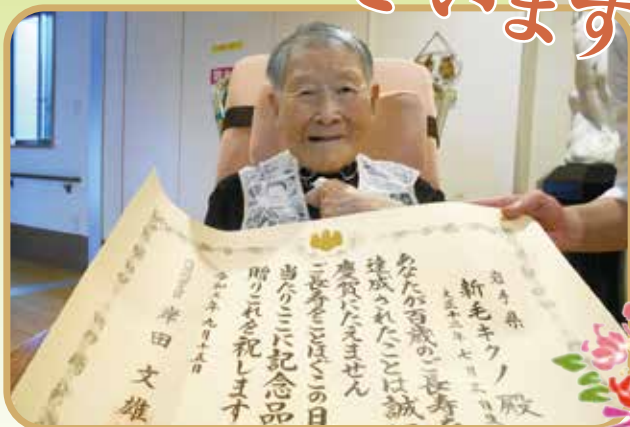 ざいます
岩手県
新毛キクノ殿
大正十二年七月
あなたが百歳のご長寿を
達成されたことは誠
慶賀にたえません
ご長寿をことほぐこの日
当たりここに記念品
贈りこれを祝します
令和五年九月十五日
岸田文雄